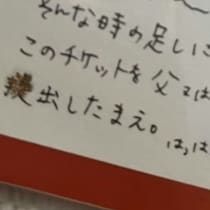 そんな時の足しに
このチケットを父又は
提出したまえ。
はっは